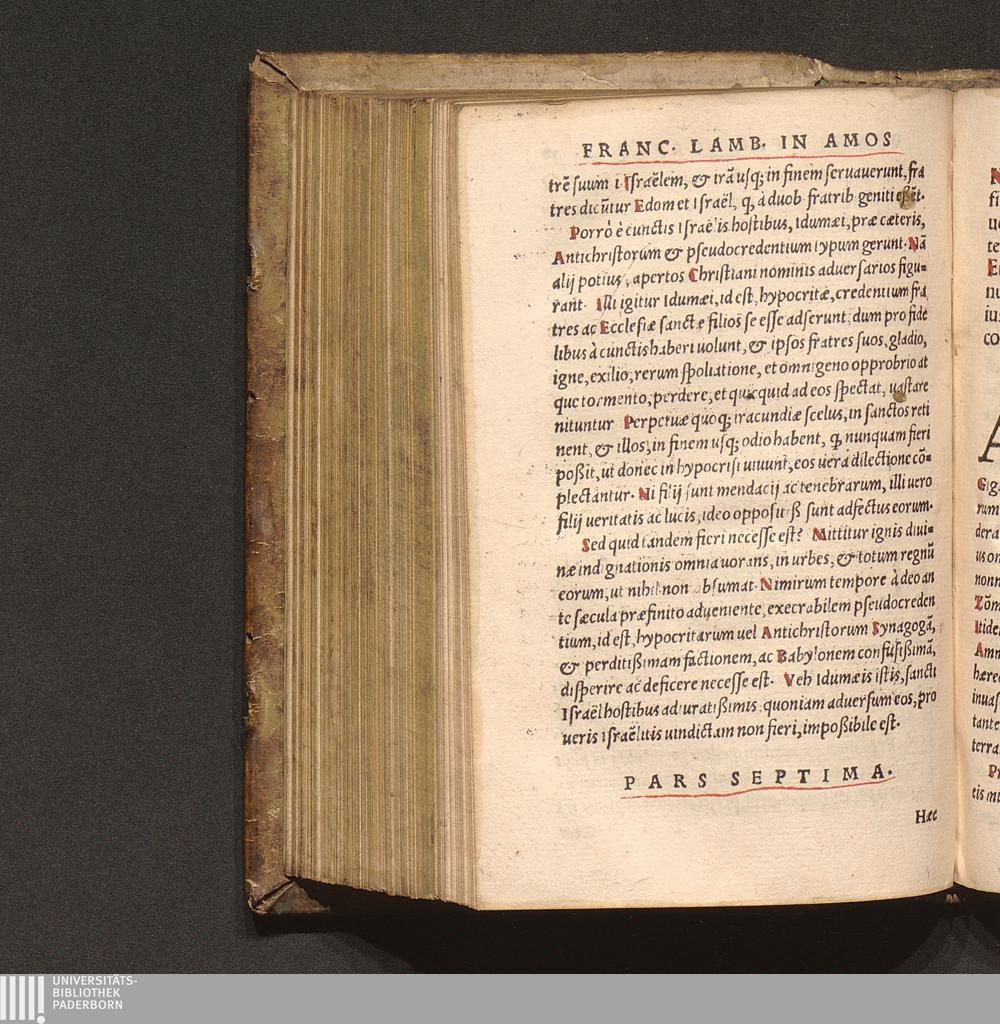 FRANC. LAMB. IN AMOS
trẽ suum i Israëlem, & irã usq; in finem seruauerunt, fra
tres dicũtur Edom et Israël, q, à duob fratrib geniti eßẽt.
Porrò è cunctis Israëlis hostibus, Idumæi, præ cæteris,
Antichristorum & pseudocredentium typum gerunt. Nã
alij potius, apertos Christiani nominis aduersarios figu-
rant. Illi igitur Idumæi, id est, hypocritæ, credentium fra
tres ac Ecclesiæ sanctæ filios se esse adserunt, dum pro fide
libus à cunctis haberi uolunt, & ipsos fratres suos, gladio,
igne, exilio, rerum spoliatione, et omnigeno opprobrio at
que tormento, perdere, et quicquid ad eos spectat, uastare
nituntur Perpetuæ quoq; iracundiæ scelus, in sanctos reti
nent, & illos, in finem usq; odio habent, q, nunquam fieri
poßit, ut donec in hypocrisi uiuunt, eos uera dilectione cõ-
plectantur. Ni filij sunt mendacij ac tenebrarum, illi uero
filij ueritatis ac lucis, ideo oppositiß sunt adfectus eorum.
Sed quid tandem fieri necesse est? Mittitur ignis diui-
næ indignationis omnia uorans, in urbes, & totum regnũ
eorum, ut nihil non absumat. Nimirum tempore à deo an
te sæcula præfinito adueniente, execrabilem pseudocreden
tium, id est, hypocritarum uel Antichristorum Synagogã,
& perditißimam factionem, ac Babylonem confusißimã,
disperire ac deficere necesse est. Veh Idumæis istis, sancti
Israël hostibus adiuratißimis quoniam aduersum eos, pro
ueris Israëlitis uindictam non fieri, impoßibile est.
PARS SEPTIMA.
Hæc
UNIVERSITÄTS-
BIBLIOTHEK
PADERBORN